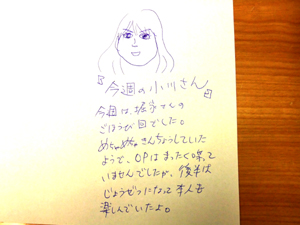 『今週の小川さん』
今週は、堀家さんの
ごほうが目でした。
めちゃめちゃきんちょうしていた
ようで、OPはまったく喋って
いませんでしたが、後半は
じょうぜつになって本人も
楽しんでいたよ。